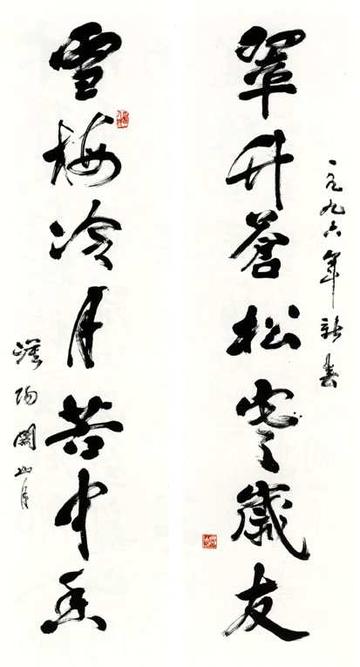 一九九六年新春
翠竹蒼松寒歲友
雪梅冷月苦中香
漠陽關山月